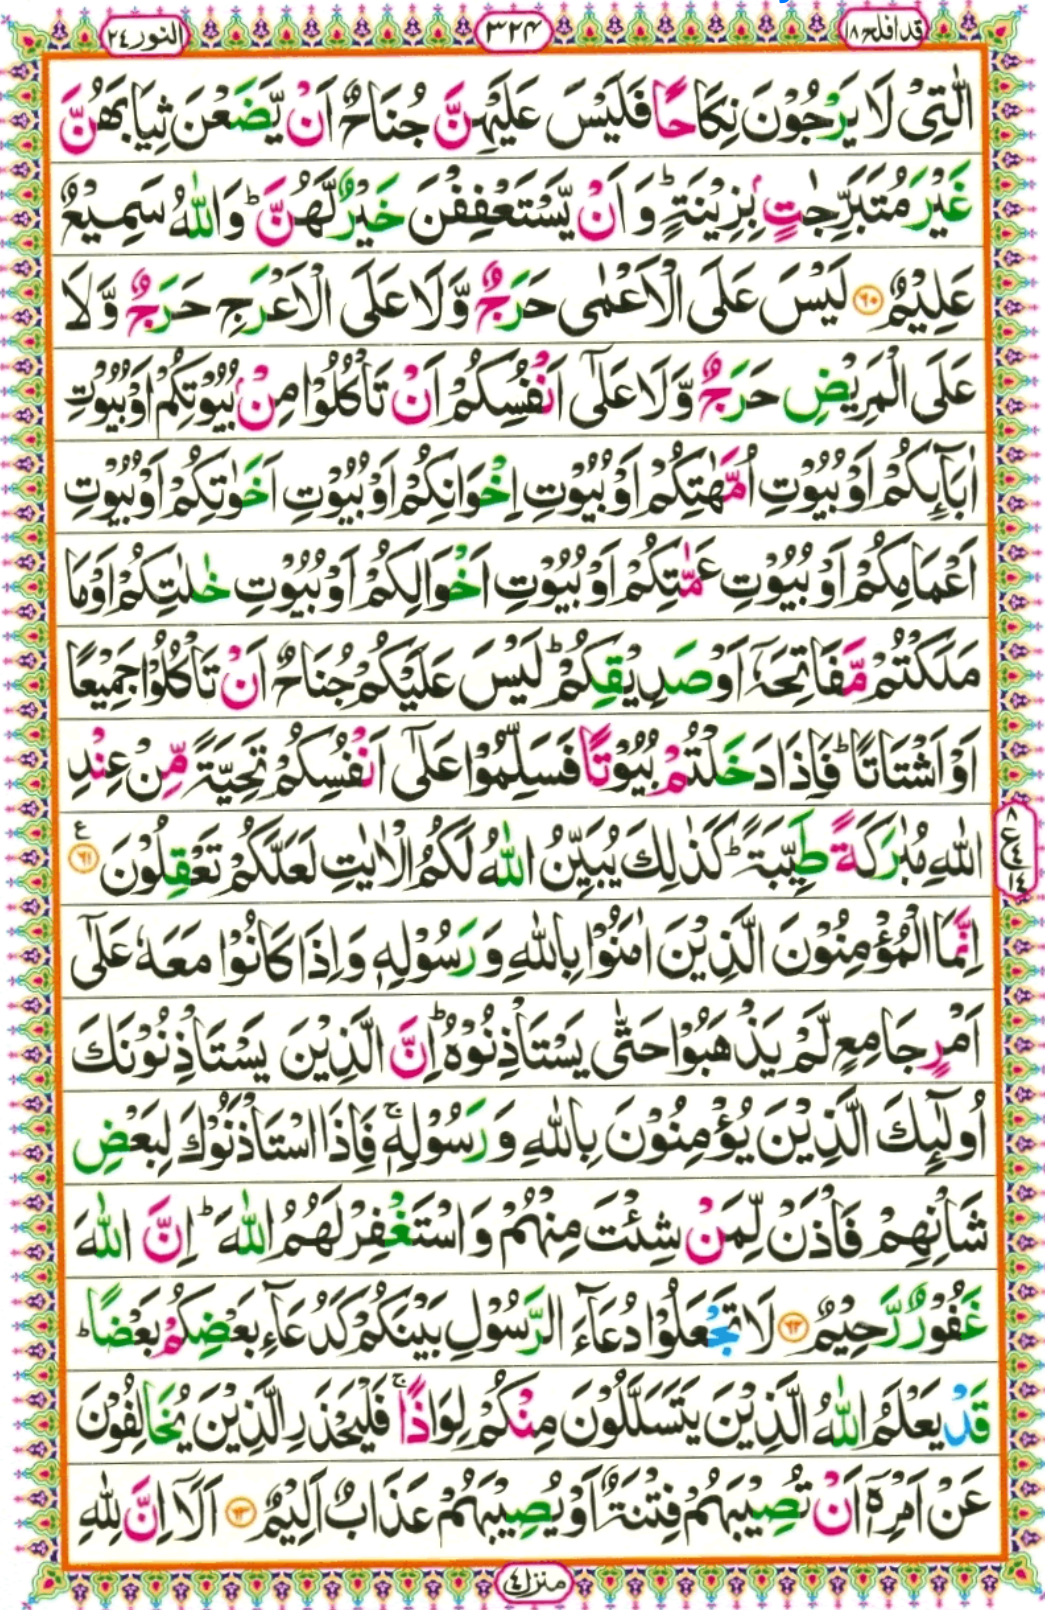 قد افلح ١٨
٣٢٤
النور ٢٤
الّٰتِیْ لَا یَرْجُوْنَ نِكَاحًا فَلَیْسَ عَلَیْهِنَّ جُنَاحٌ اَنْ یَّضَعْنَ ثِیَابَهُنَّ
غَیْرَ مُتَبَرِّجٰتٍۭ بِزِیْنَةٍؕ وَ اَنْ یَّسْتَعْفِفْنَ خَیْرٌ لَّهُنَّؕ وَاللّٰهُ سَمِیْعٌ
عَلِیْمٌ ﴿٦٠﴾ لَیْسَ عَلَى الْاَعْمٰى حَرَجٌ وَّلَا عَلَى الْاَعْرَجِ حَرَجٌ وَّلَا
عَلَى الْمَرِیْضِ حَرَجٌ وَّلَا عَلٰۤى اَنْفُسِكُمْ اَنْ تَاْكُلُوْا مِنْۢ بُیُوْتِكُمْ اَوْ بُیُوْتِ
اٰبَآىِٕكُمْ اَوْ بُیُوْتِ اُمَّهٰتِكُمْ اَوْ بُیُوْتِ اِخْوَانِكُمْ اَوْ بُیُوْتِ اَخَوٰتِكُمْ اَوْ بُیُوْتِ
اَعْمَامِكُمْ اَوْ بُیُوْتِ عَمّٰتِكُمْ اَوْ بُیُوْتِ اَخْوَالِكُمْ اَوْ بُیُوْتِ خٰلٰتِكُمْ اَوْ مَا
مَلَكْتُمْ مَّفَاتِحَهٗۤ اَوْ صَدِیْقِكُمْؕ لَیْسَ عَلَیْكُمْ جُنَاحٌ اَنْ تَاْكُلُوْا جَمِیْعًا
اَوْ اَشْتَاتًاؕ فَاِذَا دَخَلْتُمْ بُیُوْتًا فَسَلِّمُوْا عَلٰۤى اَنْفُسِكُمْ تَحِیَّةً مِّنْ عِنْدِ
اللّٰهِ مُبٰرَكَةً طَیِّبَةًؕ كَذٰلِكَ یُبَیِّنُ اللّٰهُ لَكُمُ الْاٰیٰتِ لَعَلَّكُمْ تَعْقِلُوْنَ ﴿٦١﴾ ع
٨
ع
١٤
اِنَّمَا الْمُؤْمِنُوْنَ الَّذِیْنَ اٰمَنُوْا بِاللّٰهِ وَ رَسُوْلِهٖ وَاِذَا كَانُوْا مَعَهٗ عَلٰۤى
اَمْرٍ جَامِعٍ لَّمْ یَذْهَبُوْا حَتّٰى یَسْتَاْذِنُوْهُؕ اِنَّ الَّذِیْنَ یَسْتَاْذِنُوْنَكَ
اُولٰٓىِٕكَ الَّذِیْنَ یُؤْمِنُوْنَ بِاللّٰهِ وَ رَسُوْلِهٖۚ فَاِذَا اسْتَاْذَنُوْكَ لِبَعْضِ
شَاْنِهِمْ فَاْذَنْ لِّمَنْ شِئْتَ مِنْهُمْ وَ اسْتَغْفِرْ لَهُمُ اللّٰهَؕ اِنَّ اللّٰهَ
غَفُوْرٌ رَّحِیْمٌ ﴿٦٢﴾ لَا تَجْعَلُوْا دُعَآءَ الرَّسُوْلِ بَیْنَكُمْ كَدُعَآءِ بَعْضِكُمْ بَعْضًاؕ
قَدْ یَعْلَمُ اللّٰهُ الَّذِیْنَ یَتَسَلَّلُوْنَ مِنْكُمْ لِوَاذًاۚ فَلْیَحْذَرِ الَّذِیْنَ یُخَالِفُوْنَ
عَنْ اَمْرِهٖۤ اَنْ تُصِیْبَهُمْ فِتْنَةٌ اَوْ یُصِیْبَهُمْ عَذَابٌ اَلِیْمٌ ﴿٦٣﴾ اَلَاۤ اِنَّ لِلّٰهِ
منزل ٤